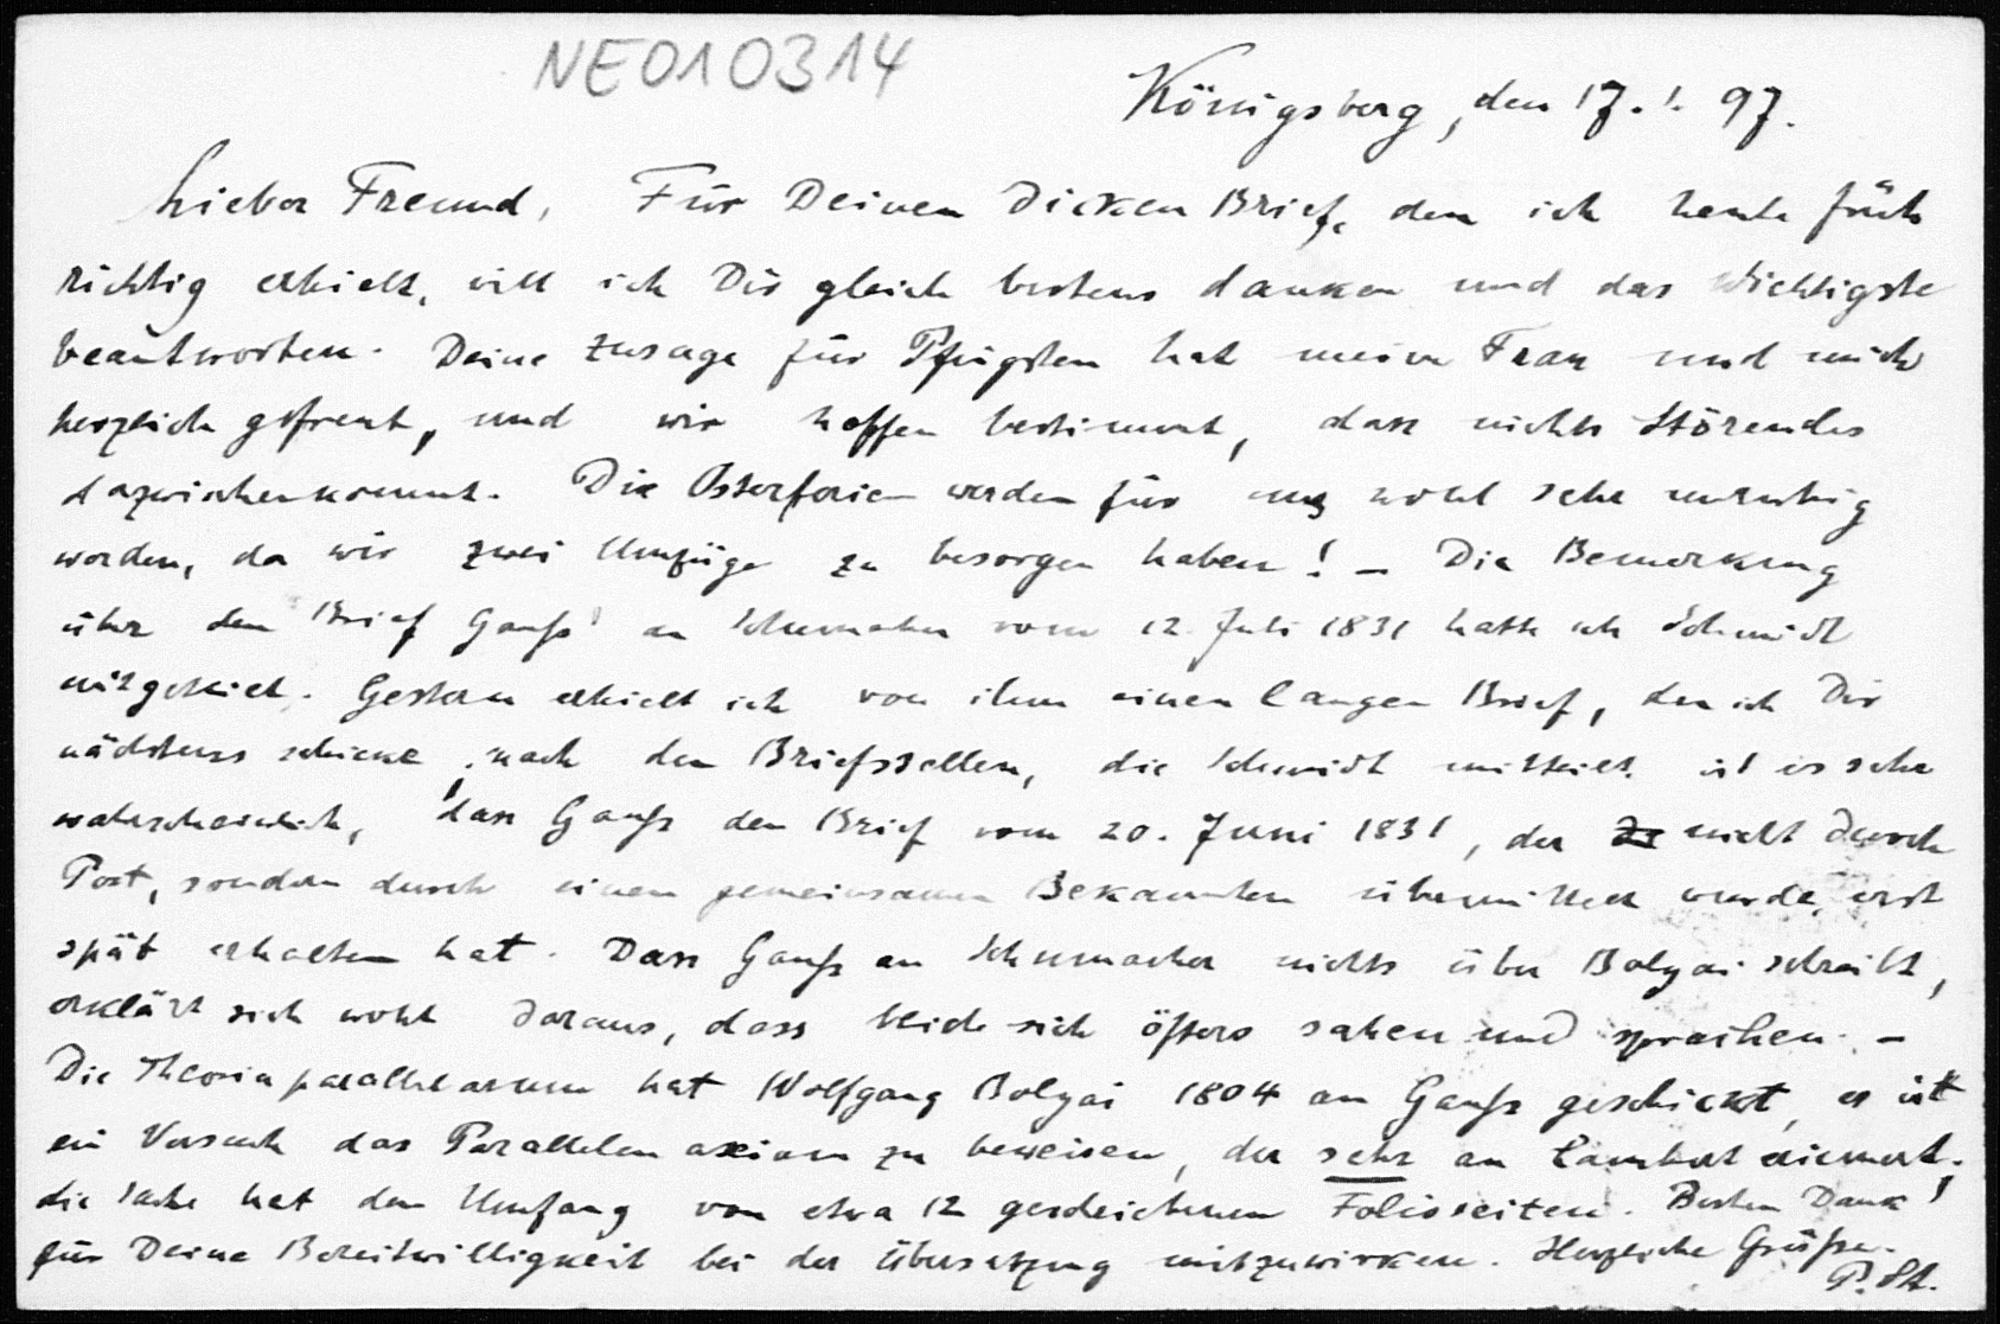 NE010314
Königsberg, den 17.1. 97.
Lieber Freund, Für Deinen dicken Brief, den ich heute früh
richtig erhielt, will ich Dir gleich bestens danken und das Wichtigste
beantworten. Deine Zusage für Pfingsten hat meine Frau und mich
herzlich gefreut, und wir hoffen bestimmt, dass nichts Störendes
dazwischenkommt. Die Osterferien werden für uns wohl sehr unruhig
werden, da wir zwei Umzüge zu besorgen haben! – Die Bemerkung
über den Brief Gauß' an Schumacher vom 12. Juli 1831 hatte ich Schmidt
mitgeteilt. Gestern erhielt ich von ihm einen langen Brief, den ich Dir
nächstens schicke; nach den Briefstellen, die Schmidt mitteilt, ist es sehr
wahrscheinlich, dass Gauß den Brief vom 20. Juni 1831, der nicht durch
Post, sondern durch einen gemeinsamen Bekannten übermittelt wurde, erst
spät erhalten hat. Dass Gauß an Schumacher nichts über Bolyai schreibt,
erklärt sich wohl daraus, dass beide sich öfters sahen und sprachen. –
Die Theoria parallelarum hat Wolfgang Bolyai 1804 an Gauß geschickt, es ist
ein Versuch das Parallelenaxiom zu beweisen, der sehr an Lambert erinnert;
die Sache hat den Umfang von etwa 12 geschriebenen Folioseiten. Besten Dank
für Deine Bereitwilligkeit bei der Übersetzung mitzuwirken. Herzliche Grüße.
P. St.